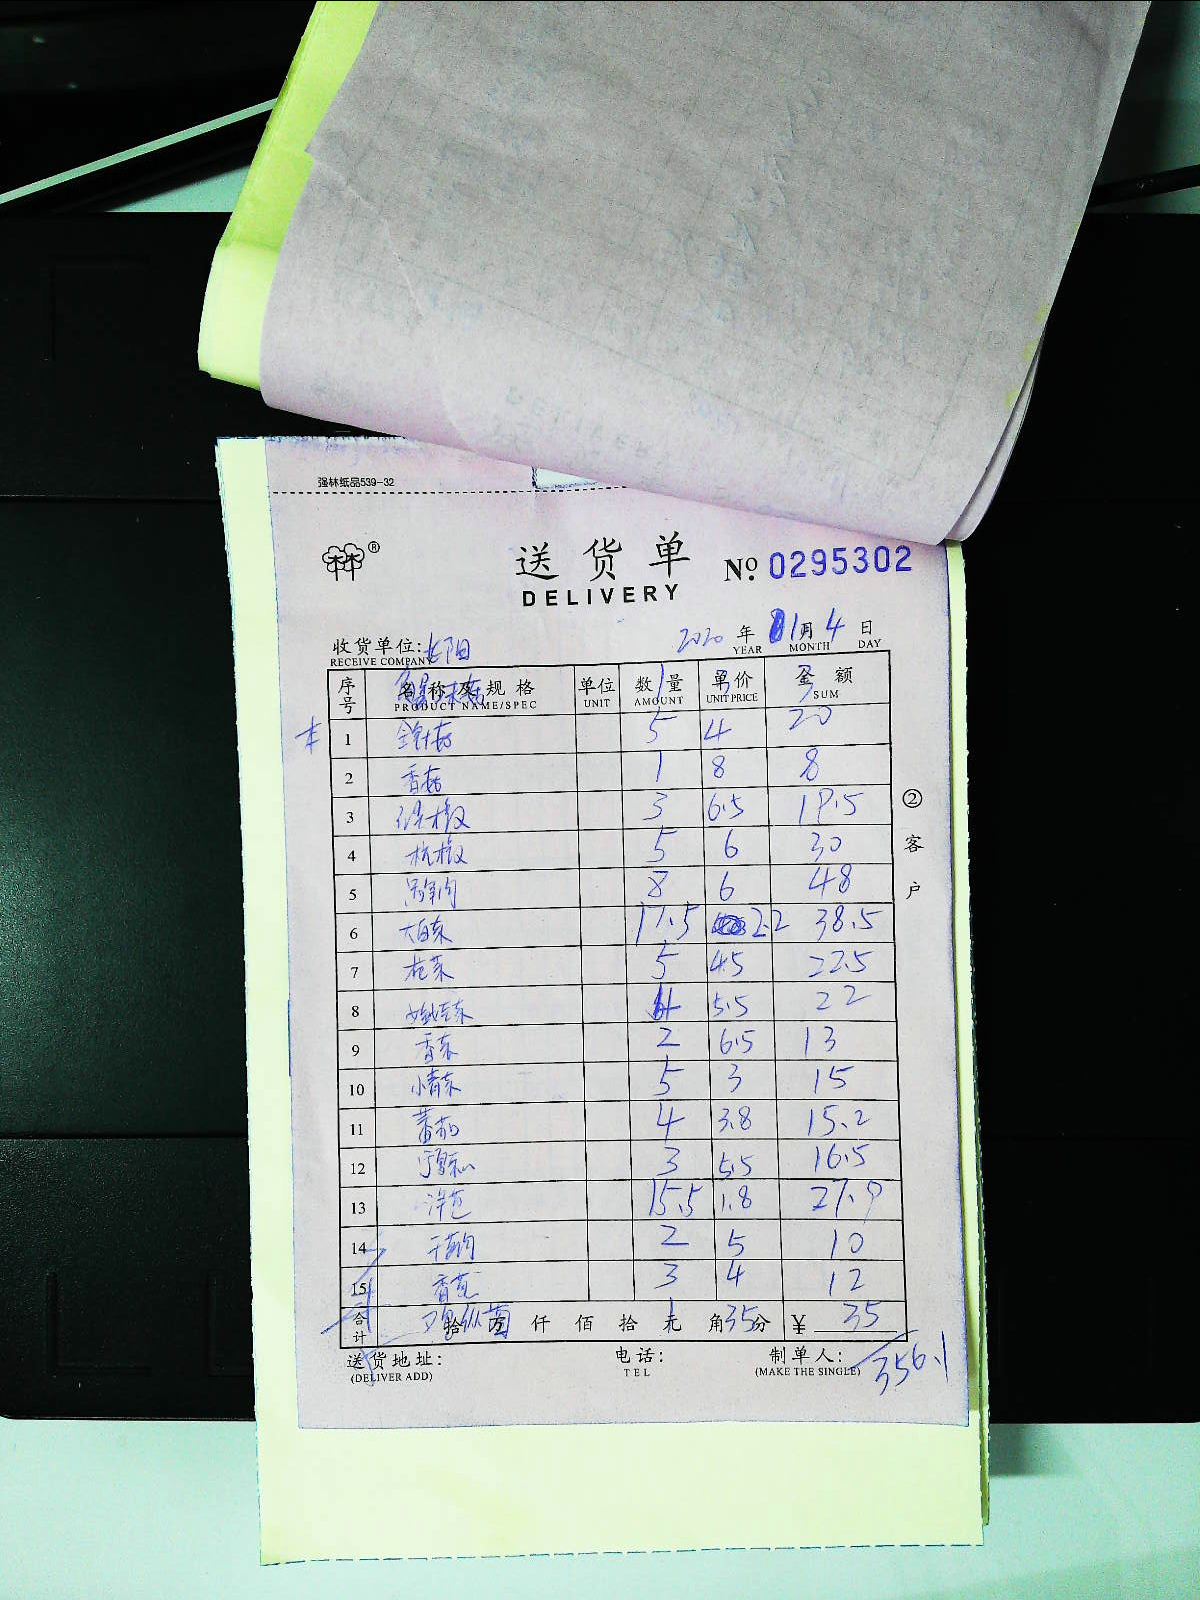 强林纸品539-32
林林® 送货单 No. 0295302
DELIVERY
收货单位: 2020 年 11月 4 日
RECEIVE COMPANY YEAR MONTH DAY
序号 名称及规格 单位 数量 单价 金额
PRODUCT NAME/SPEC UNIT AMOUNT UNIT PRICE SUM
1 3 3
1 金针菇 5 4 20
2 香菇 1 8 8
3 线椒 3 6.5 19.5
4 杭椒 5 6 30
5 8 6 48
6 大白菜 17.5 2.2 38.5
7 花菜 5 4.5 22.5
8 娃娃菜 4 5.5 22
9 香菜 2 6.5 13
10 小青菜 5 3 15
11 蕃茄 4 3.8 15.2
12 3 5.5 16.5
13 洋芋 15.5 1.8 27.9
14 2 5 10
15 香葱 3 4 12
合计 拾 万 仟 佰 拾 元 角 分 ¥
鸡枞菌 1 35 35
送货地址: 电话: 制单人:
(DELIVER ADD) TEL (MAKE THE SINGLE)
356.1
② 客户